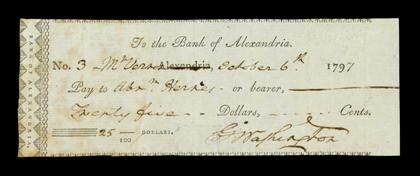 BANK OF ALEXANDRIA.
To the Bank of Alexandria.
No. 3 Mt Vernon Alexandria, October 6th 1797
Pay to Abrm or bearer,
Twenty five Dollars, Cents.
25 DOLLARS,
100
Go Washington